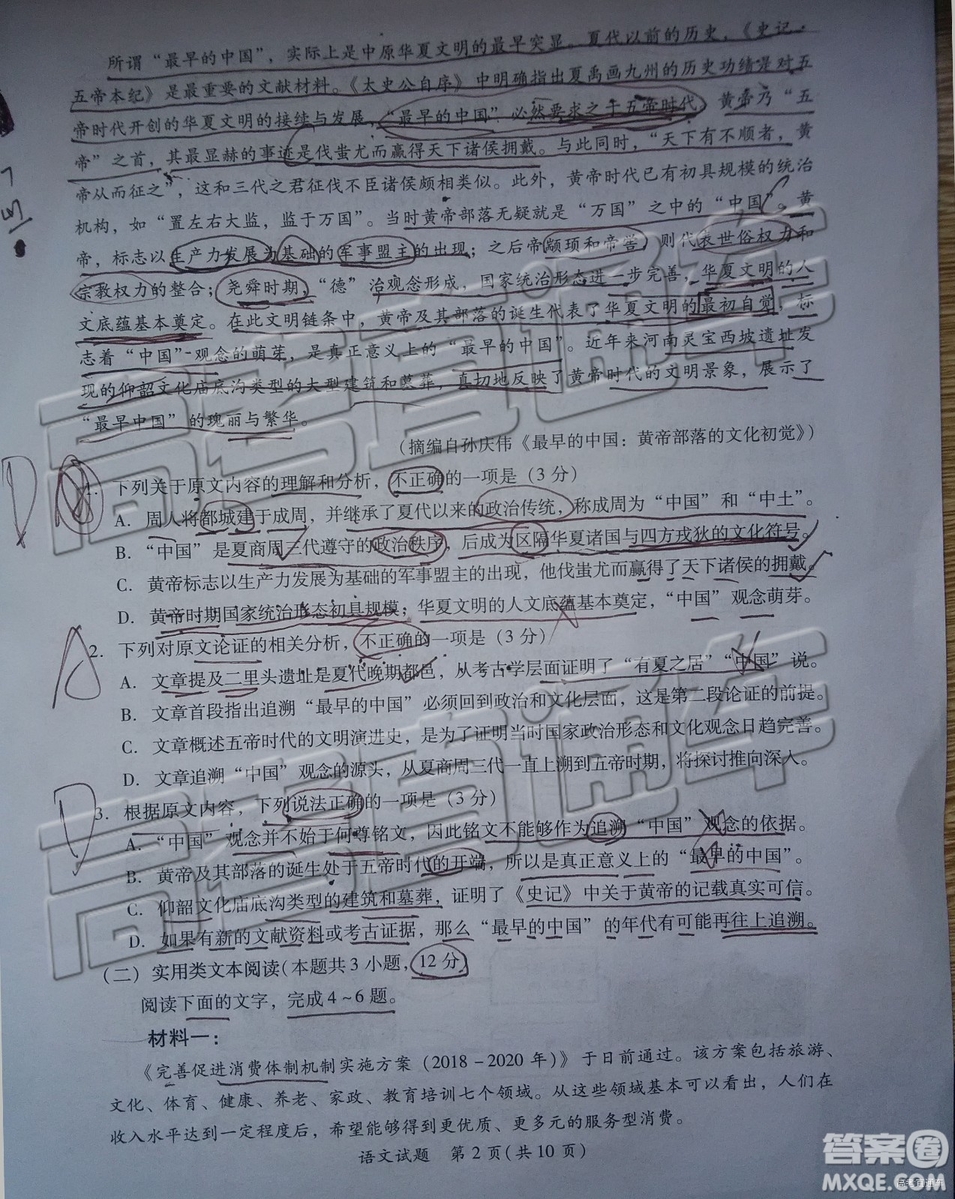 所谓“最早的中国”，实际上是中原华夏文明的最早突显。夏代以前的历史，《史记·
五帝本纪》是最重要的文献材料。《太史公自序》中明确指出夏禹画九州的历史功绩是对五
帝时代开创的华夏文明的接续与发展，“最早的中国”，必然要求之于五帝时代。黄帝乃“五
帝”之首，其最显赫的事迹是伐蚩尤而赢得天下诸侯拥戴。与此同时，“天下有不顺者，黄
帝从而征之”，这和三代之君征伐不臣诸侯颇相类似。此外，黄帝时代已有初具规模的统治
机构，如“置左右大监，监于万国”。当时黄帝部落无疑就是“万国”之中的“中国”。黄
帝，标志以生产力发展为基础的军事盟主的出现；之后帝颛顼和帝喾，则代表世俗权力和
宗教权力的整合；尧舜时期，“德”治观念形成，国家统治形态进一步完善，华夏文明的人
文底蕴基本奠定。在此文明链条中，黄帝及其部落的诞生代表了华夏文明的最初自觉，标
志着“中国”观念的萌芽，是真正意义上的“最早的中国”。近年来河南灵宝西坡遗址发
现的仰韶文化庙底沟类型的大型建筑和墓葬，真切地反映了黄帝时代的文明景象，展示了
“最早中国”的瑰丽与繁华。
（摘编自孙庆伟《最早的中国：黄帝部落的文化初觉》）
1. 下列关于原文内容的理解和分析，不正确的一项是（3 分）
A. 周人将都城建于成周，并继承了夏代以来的政治传统，称成周为“中国”和“中土”。
B. “中国”是夏商周三代遵守的政治秩序，后成为区隔华夏诸国与四方戎狄的文化符号。
C. 黄帝标志以生产力发展为基础的军事盟主的出现，他伐蚩尤而赢得了天下诸侯的拥戴。
D. 黄帝时期国家统治形态初具规模；华夏文明的人文底蕴基本奠定，“中国”观念萌芽。
2. 下列对原文论证的相关分析，不正确的一项是（3 分）
A. 文章提及二里头遗址是夏代晚期都邑，从考古学层面证明了“有夏之居”“中国”说。
B. 文章首段指出追溯“最早的中国”必须回到政治和文化层面，这是第二段论证的前提。
C. 文章概述五帝时代的文明演进史，是为了证明当时国家政治形态和文化观念日趋完善。
D. 文章追溯“中国”观念的源头，从夏商周三代一直上溯到五帝时期，将探讨推向深入。
3. 根据原文内容，下列说法正确的一项是（3 分）
A. “中国”观念并不始于何尊铭文，因此铭文不能够作为追溯“中国”观念的依据。
B. 黄帝及其部落的诞生处于五帝时代的开端，所以是真正意义上的“最早的中国”。
C. 仰韶文化庙底沟类型的建筑和墓葬，证明了《史记》中关于黄帝的记载真实可信。
D. 如果有新的文献资料或考古证据，那么“最早的中国”的年代有可能再往上追溯。
（二）实用类文本阅读（本题共 3 小题，12 分）
阅读下面的文字，完成 4～6 题。
材料一：
《完善促进消费体制机制实施方案（2018－2020 年）》于日前通过。该方案包括旅游、
文化、体育、健康、养老、家政、教育培训七个领域。从这些领域基本可以看出，人们在
收入水平达到一定程度后，希望能够得到更优质、更多元的服务型消费。
语文试题 第 2 页（共 10 页）
高考直通车
高考直通车
答案圈
MXQE.COM
D
A
D